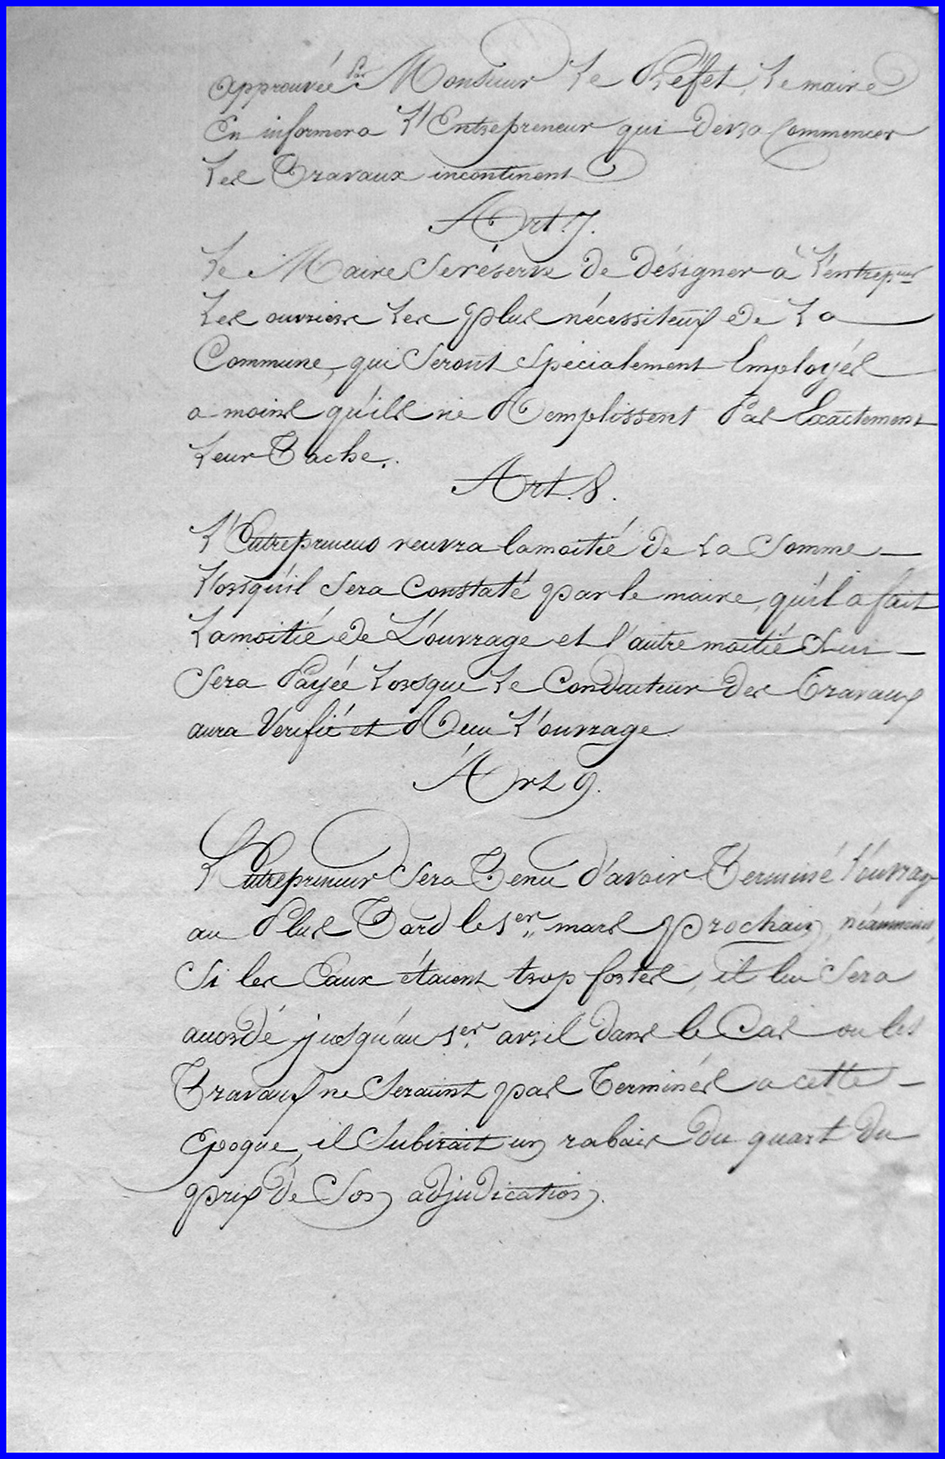 approuvée par Monsieur Le Préfet, Le maire
En informera L'Entrepreneur qui devra Commencer
Les Travaux incontinent
Art. 7.
Le Maire se réserve de désigner à L'entrepneur
Les ouvriers Les plus nécessiteux de La
Commune, qui Seront Spécialement Employés
a moins qu'ils ne Remplissent Pas Exactement
Leur Tache.
Art. 8.
L'Entrepreneur recevra la moitié de La Somme
Lorsqu'il Sera Constaté par le maire, qu'il a fait
La moitié de L'ouvrage et l'autre moitié Lui
Sera Payée Lorsque Le Conducteur des Travaux
aura Verifié et Recu L'ouvrage
Art 9.
L'Entrepreneur Sera Tenu d'avoir Terminé L'ouvrag
au Plus Tard le 1er mars prochain, néammoins,
Si les Eaux étaient trop fortes, il lui Sera
accordé jusqu'au 1er avril dans le Cas ou les
Travaux ne Seraient pas Terminés a cette
Epoque, il Subirait un rabais du quart du
prix de Son adjudication.